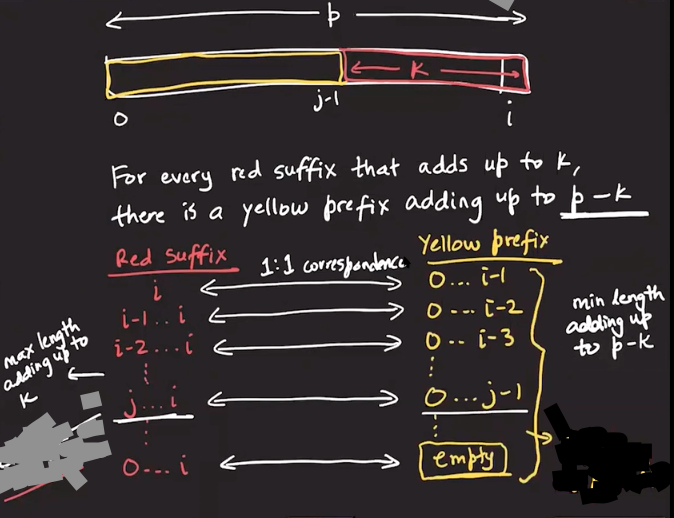 p
K
j-1
0
i
For every red suffix that adds up to K,
there is a yellow prefix adding up to p-K
Red Suffix
1:1 correspondence
Yellow prefix
i
0... i-1
i-1...i
0... i-2
i-2...i
0.. i-3
j...i
0...j-1
0...i
empty
max length
adding up to
K
min length
adding up
to p-K